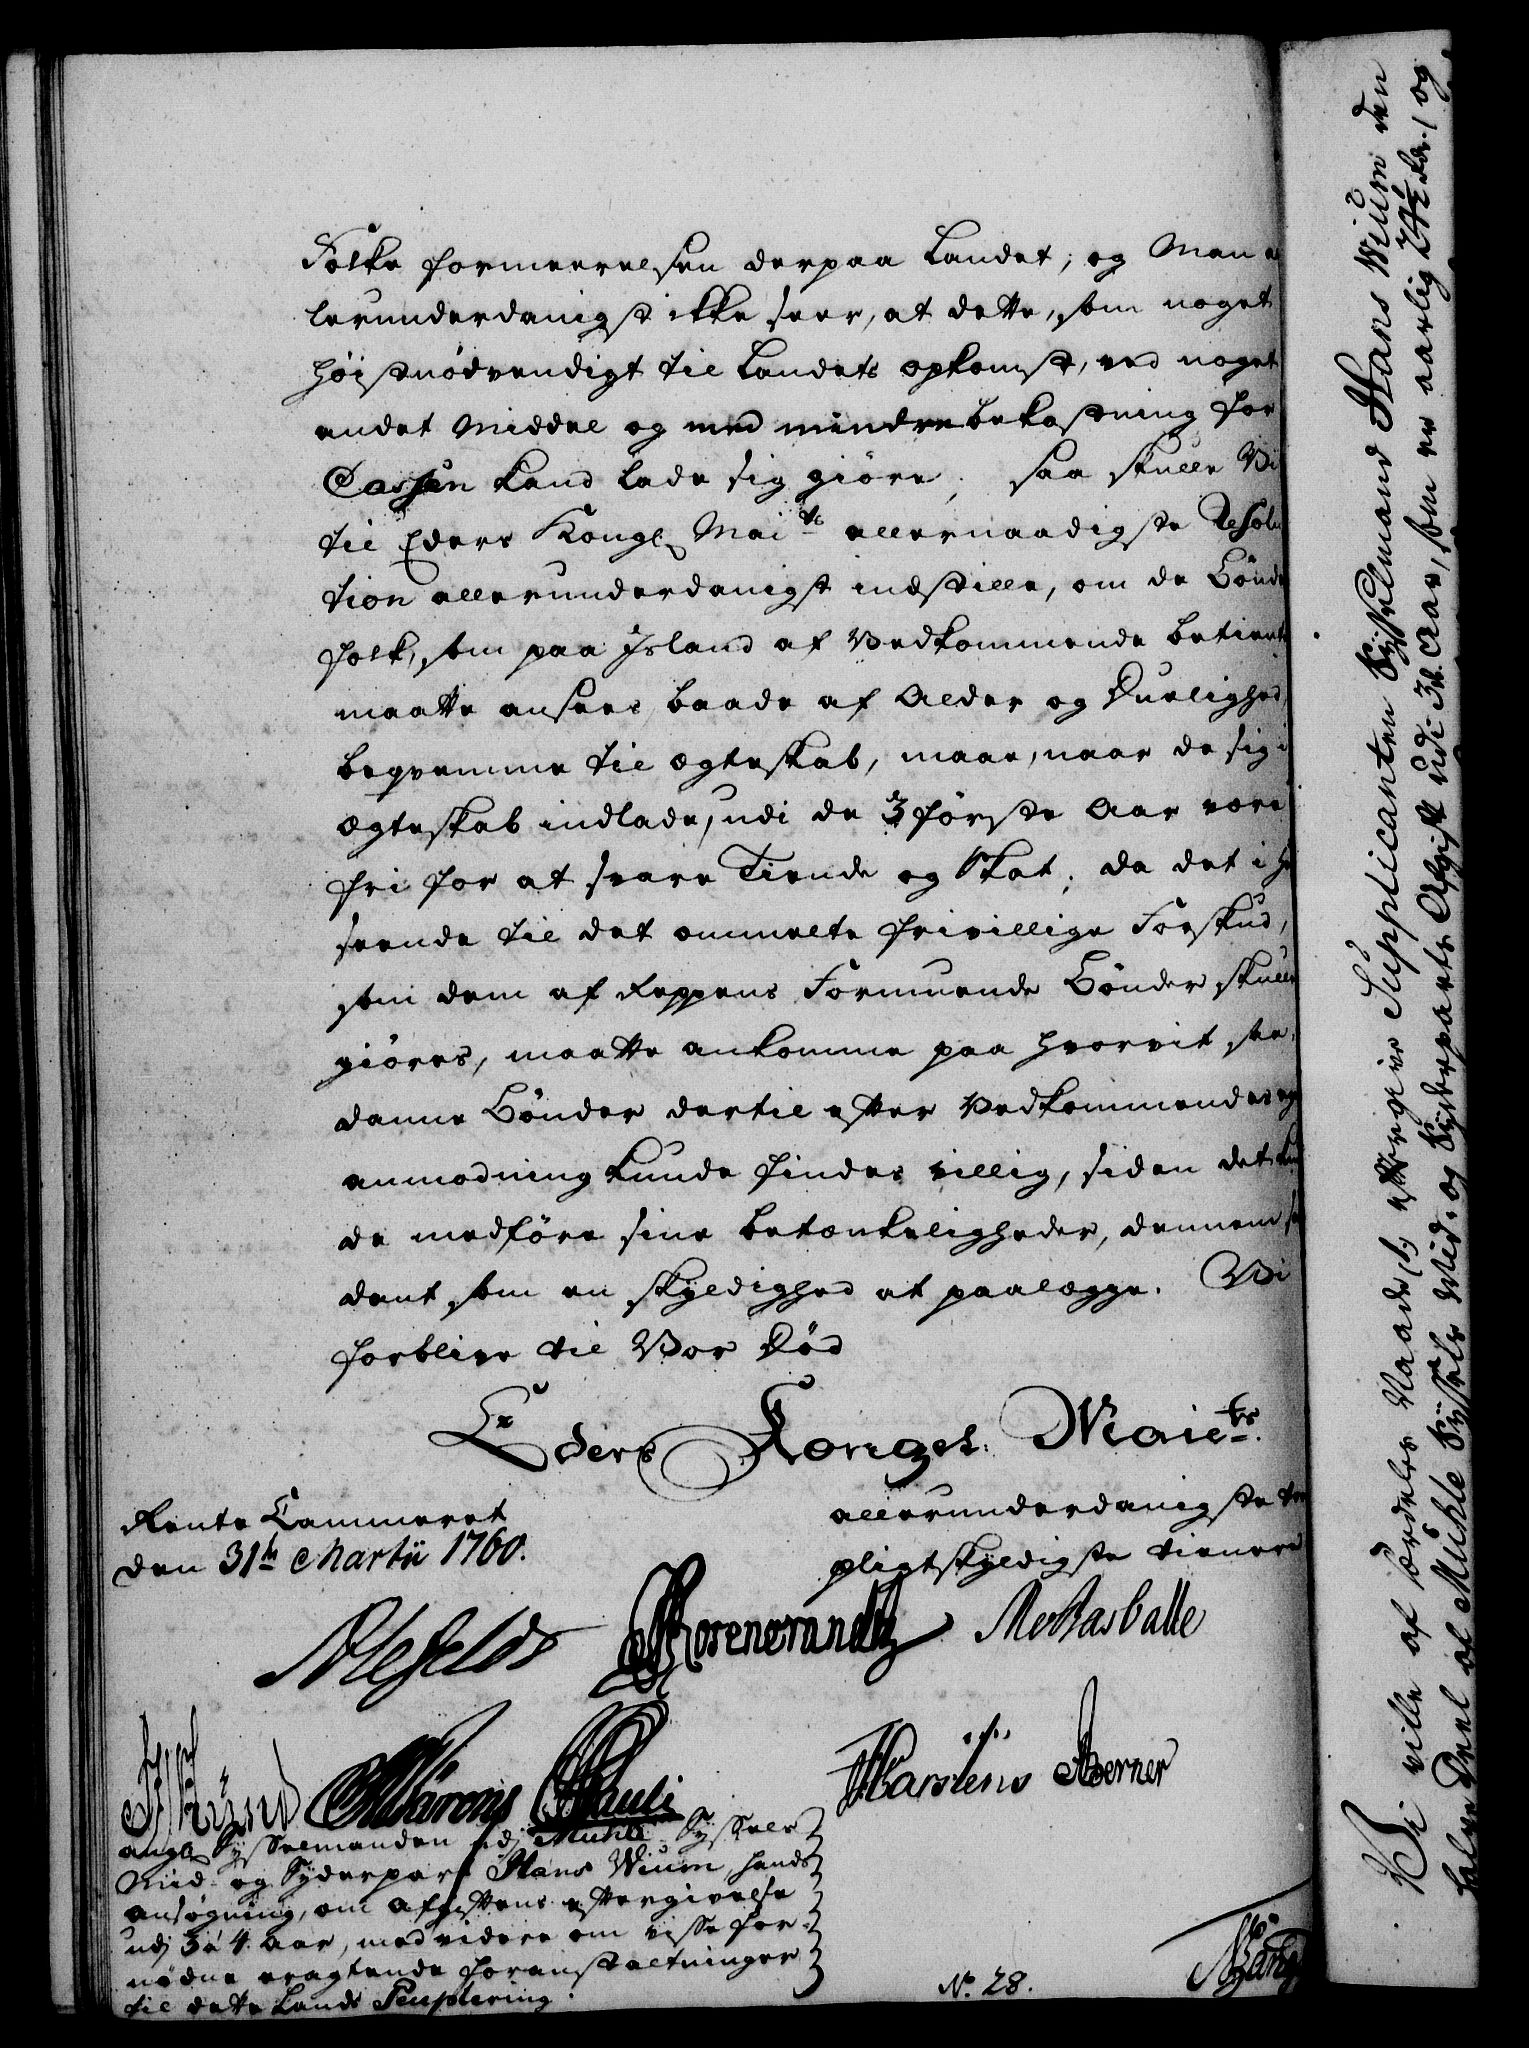 Folke formeerelsen derpaa Landet; og Man a
lerunderdanigst ikke seer, at dette, som noget
høistnødvendigt til Landets opkomst, ved noget
andet Middel og med mindre bekostning for
Cassen kand lade sig giøre; saa skulle Vi
til Eders Kongl. Maits allernaadigste Resolu
tion allerunderdanigst indstille, om de Bønde
folk, som paa Island af Vedkommende betient
maatte ansees baade af Alder og Duelighed
beqvemme til ægteskab, maae, naar de sig i
Ægteskab indlade, udi de 3 første Aar være
fri for at svare Tiende og Skat; da det i He
seende til det ommelte frivillige Forskud,
som dem af Reppens Formuende Bønder skulle
giøres, maatte ankomme paa hvorvit saa,
danne Bønder dertil efter Vedkommendes
anmodning kunde findes villig, siden det kun
de medføre sine betænkeligheder, dennem saa
dant som en skyldighed at paalægge. Vi
forblive til Vor Død
Eders Kongel. Maiets.
allerunderdanigste
pligtskyldigste tienere
Rente Cammeret
den 31te Martii 1760.
Ahlefeldt Rosencrandtz
Wärens Pauli
Karstens Berner
angl. Sysselmanden udj Muhle-Syssels
Mid- og Syderpart Hans Wium, hands
ansøgning, om afgiftens eftergivelse
udj 3 à 4 Aar, med videre om visse for-
nødne eragtende foranstaltninger
til dette Lands Peuplering.
No. 28.
Vi ville af særdeles Naade eftergive Supplicanten Sysselmand Hans Wium den
halve Deel af Muhle Syssels Mid- og Syderparts Afgift udi 3de Aar, som er aarlig og